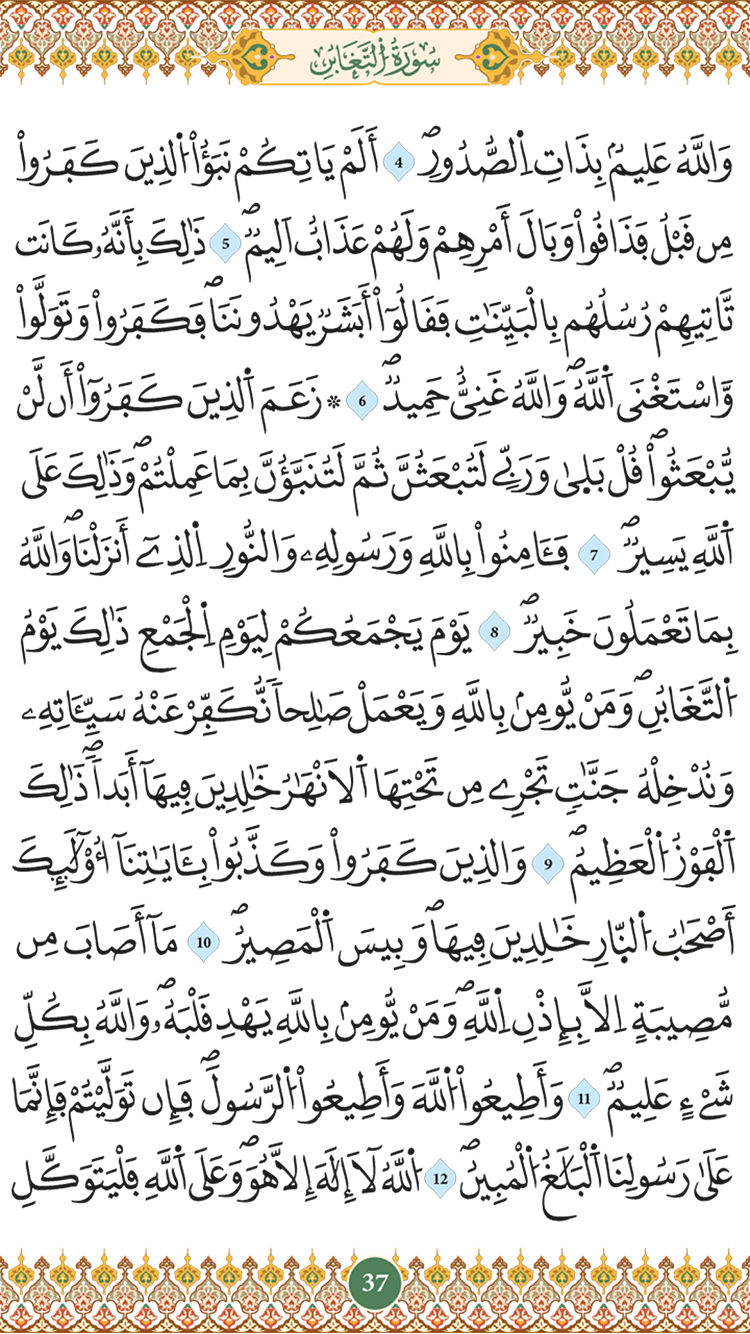 سُورَةُ التَّغَابُنِ
وَاللَّهُ عَلِيمُۢ بِذَاتِ اِ۬لصُّدُورِۖ 4 أَلَمْ يَاتِكُمْ نَبَؤُاْ اُ۬لذِينَ كَفَرُواْ
مِن قَبْلُ فَذَاقُواْ وَبَالَ أَمْرِهِمْ وَلَهُمْ عَذَابٌ اَلِيمٞۖ 5 ذَٰلِكَ بِأَنَّهُۥ كَانَت
تَّاتِيهِمْ رُسُلُهُم بِالْبَيِّنَٰتِ فَقَالُوٓاْ أَبَشَرٞ يَهْدُونَنَاۖ فَكَفَرُواْ وَتَوَلَّواْ
وَّاسْتَغْنَى اَ۬للَّهُۖ وَاللَّهُ غَنِيٌّ حَمِيدٞۖ 6 ۞ زَعَمَ اَ۬لذِينَ كَفَرُوٓاْ أَن لَّنْ
يُّبْعَثُواْۖ قُلْ بَلَىٰ وَرَبِّے لَتُبْعَثُنَّ ثُمَّ لَتُنَبَّؤُنَّ بِمَا عَمِلْتُمْۖ وَذَٰلِكَ عَلَى
اَ۬للَّهِ يَسِيرٞۖ 7 فَـَٔامِنُواْ بِاللَّهِ وَرَسُولِهِۦ وَالنُّورِ اِ۬لذِےٓ أَنزَلْنَاۖ وَاللَّهُ
بِمَا تَعْمَلُونَ خَبِيرٞۖ 8 يَوْمَ يَجْمَعُكُمْ لِيَوْمِ اِ۬لْجَمْعِ ذَٰلِكَ يَوْمُ
اُ۬لتَّغَابُنِۖ وَمَنْ يُّومِنۢ بِاللَّهِ وَيَعْمَلْ صَٰلِحاٗ نُّكَفِّرْ عَنْهُ سَيِّـَٔاتِهِۦ
وَنُدْخِلْهُ جَنَّٰتٖ تَجْرِے مِن تَحْتِهَا اَ۬لَانْهَٰرُ خَٰلِدِينَ فِيهَآ أَبَداٗۖ ذَٰلِكَ
اَ۬لْفَوْزُ اُ۬لْعَظِيمُۖ 9 وَالذِينَ كَفَرُواْ وَكَذَّبُواْ بِـَٔايَٰتِنَآ أُوْلَٰٓئِكَ
أَصْحَٰبُ اُ۬لنّ۪ارِ خَٰلِدِينَ فِيهَاۖ وَبِيسَ اَ۬لْمَصِيرُۖ 10 مَآ أَصَابَ مِن
مُّصِيبَةٍ اِلَّا بِإِذْنِ اِ۬للَّهِۖ وَمَنْ يُّومِنۢ بِاللَّهِ يَهْدِ قَلْبَهُۥۖ وَاللَّهُ بِكُلِّ
شَےْءٍ عَلِيمٞۖ 11 وَأَطِيعُواْ اُ۬للَّهَ وَأَطِيعُواْ اُ۬لرَّسُولَۖ فَإِن تَوَلَّيْتُمْ فَإِنَّمَا
عَلَىٰ رَسُولِنَا اَ۬لْبَلَٰغُ اُ۬لْمُبِينُۖ 12 اُ۬للَّهُ لَآ إِلَٰهَ إِلَّا هُوَۖ وَعَلَى اَ۬للَّهِ فَلْيَتَوَكَّلِ
37